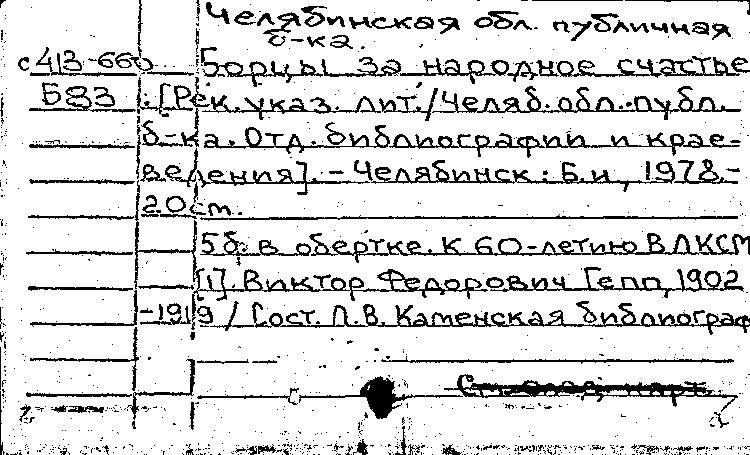 Челябинская обл. публичная
б-ка.
с413-660 Борцы за народное счастье
Б83 : [Рек. указ. лит. / Челяб. обл. публ.
б-ка. Отд. библиографии и крае-
ведения]. - Челябинск : Б.и, 1978.-
20 cm.
5б. в обертке. К 60-летию ВЛКСМ
[1]. Виктор Федорович Гепп, 1902
-1919 / Сост. Л.В. Каменская библиограф
См. след. карт.